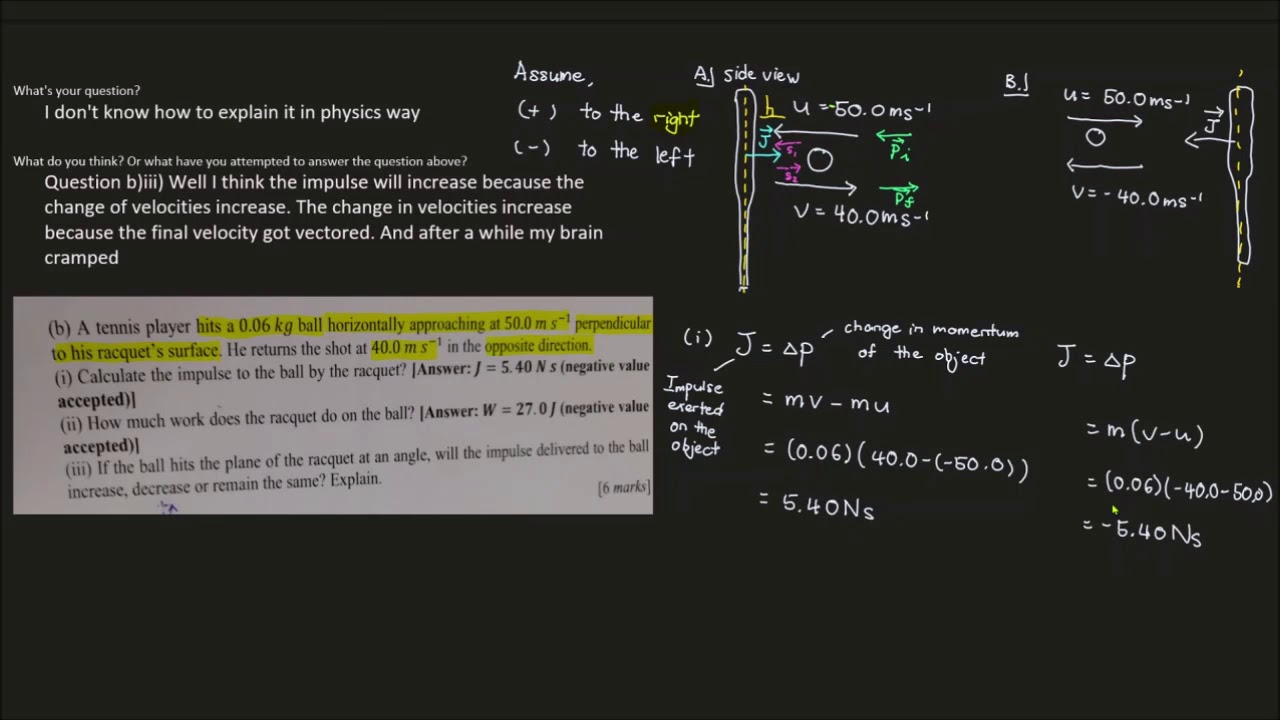 What's your question?
I don't know how to explain it in physics way
What do you think? Or what have you attempted to answer the question above?
Question b)iii) Well I think the impulse will increase because the
change of velocities increase. The change in velocities increase
because the final velocity got vectored. And after a while my brain
cramped
(b) A tennis player hits a 0.06 kg ball horizontally approaching at 50.0 m s⁻¹ perpendicular
to his racquet's surface. He returns the shot at 40.0 m s⁻¹ in the opposite direction.
(i) Calculate the impulse to the ball by the racquet? [Answer: J = 5.40 N s (negative value
accepted)]
(ii) How much work does the racquet do on the ball? [Answer: W = 27.0 J (negative value
accepted)]
(iii) If the ball hits the plane of the racquet at an angle, will the impulse delivered to the ball
increase, decrease or remain the same? Explain.
[6 marks]
Assume,
(+) to the right
(-) to the left
A.) side view
h
u = -50.0 ms⁻¹
J
s₁
s₂
Pi
Pf
v = 40.0 ms⁻¹
B.)
u = 50.0 ms⁻¹
J
v = -40.0 ms⁻¹
(i) J = Δp
change in momentum
of the object
Impulse
exerted
on the
object
= mv - mu
= (0.06)(40.0-(-50.0))
= 5.40 Ns
J = Δp
= m(v-u)
= (0.06)(-40.0-50.0)
= -5.40 Ns